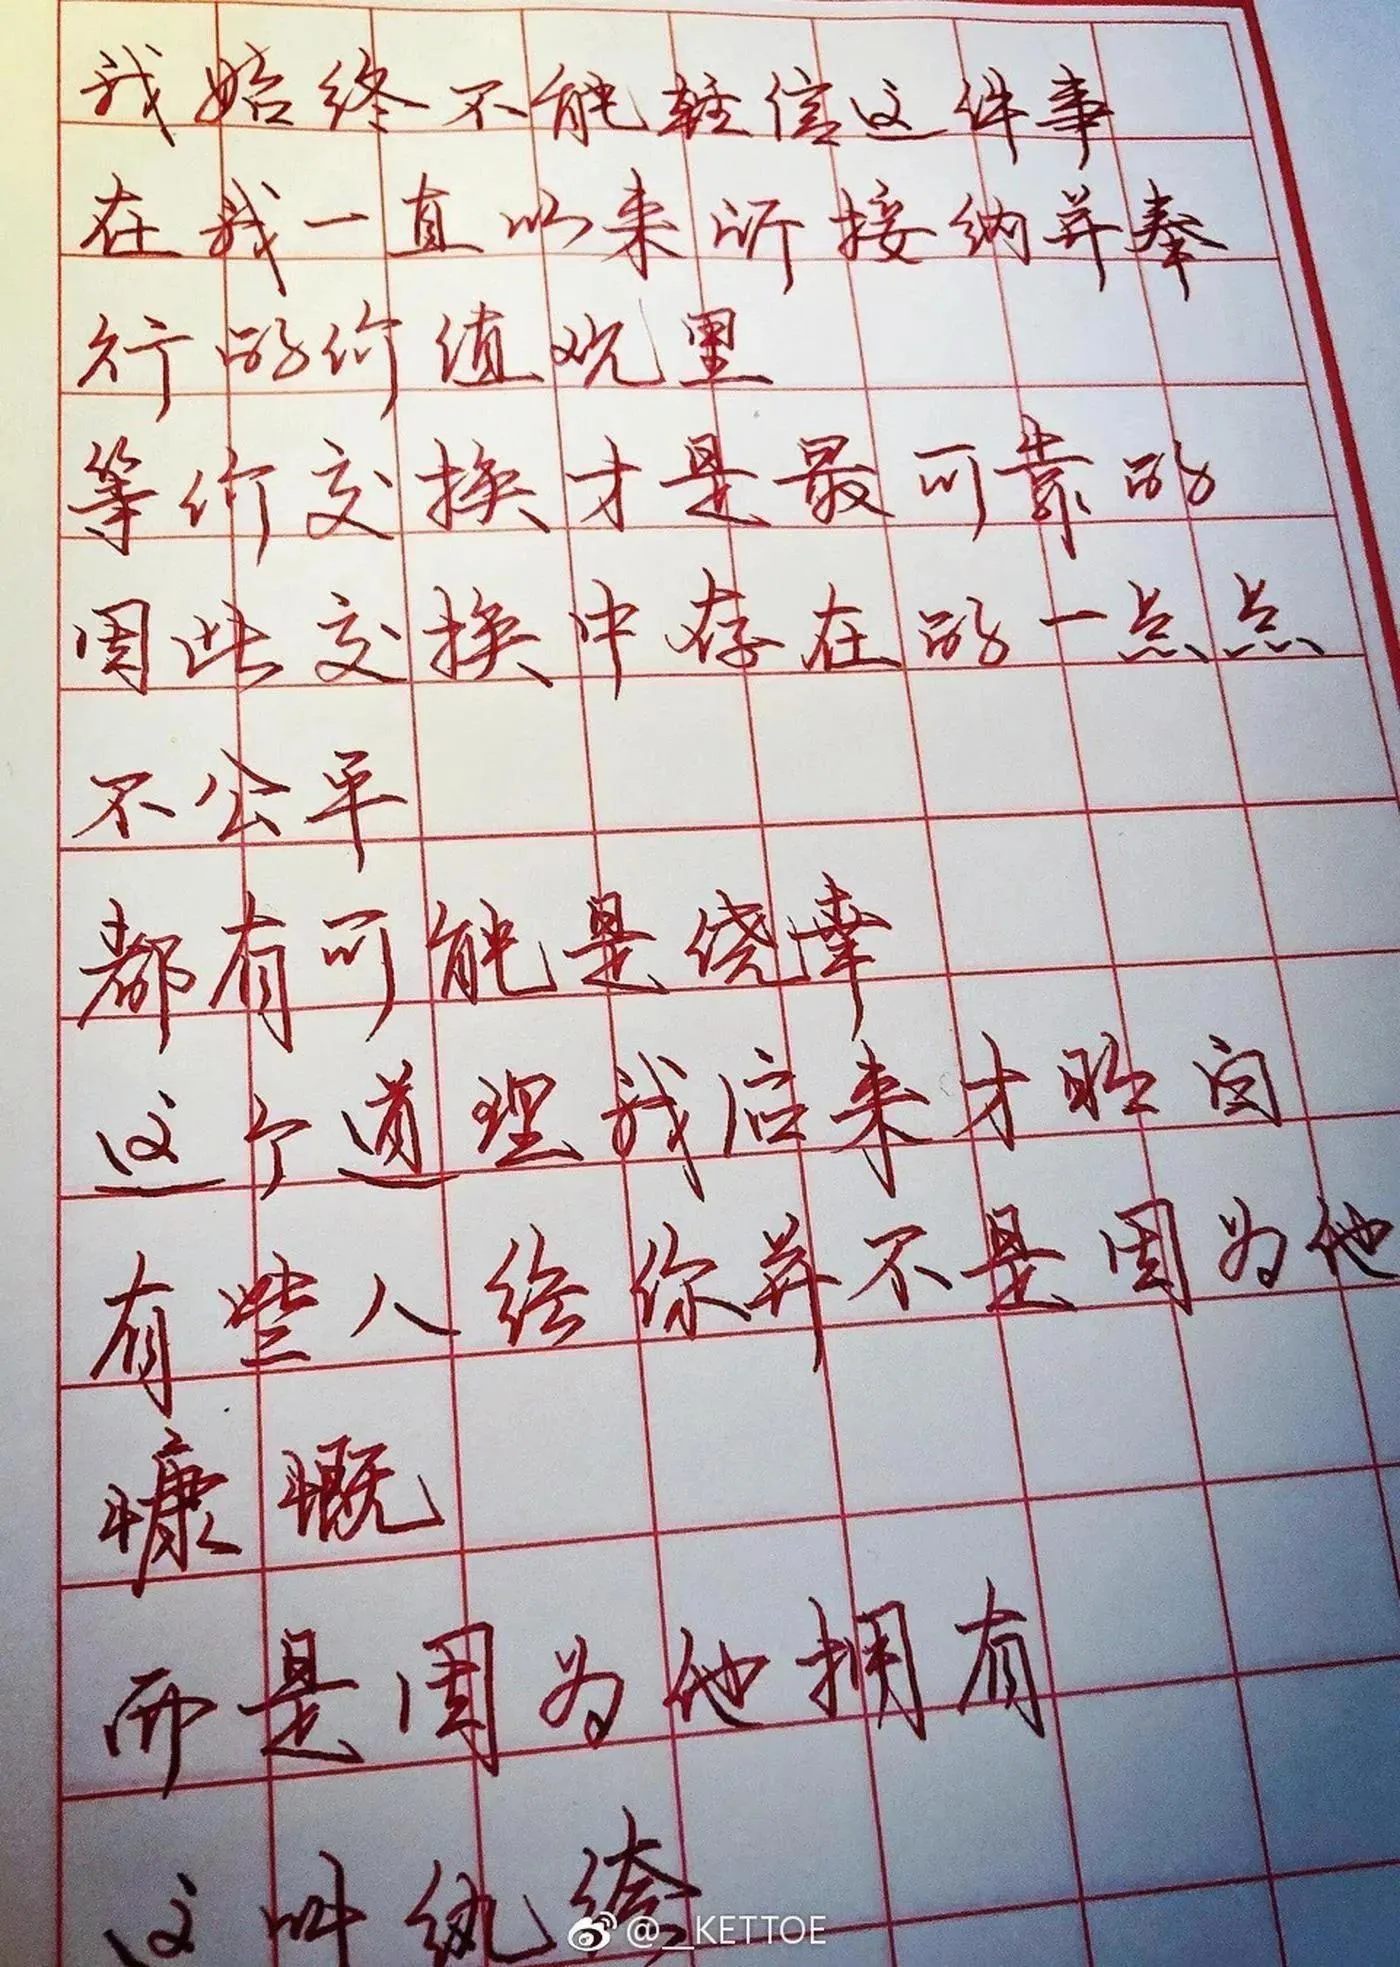 我始终不能轻信这件事
在我一直以来所接纳并奉
行的价值观里
等价交换才是最可靠的
因此交换中存在的一点点
不公平
都有可能是侥幸
这个道理我后来才明白
有些人给你并不是因为他
慷慨
而是因为他拥有
这叫纨绔
@_KETTOE